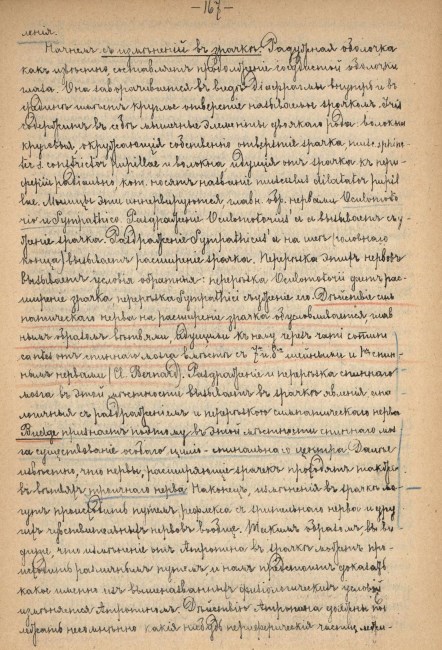 —167—
ленія.
Начнемъ съ измѣненій въ зрачкѣ. Радужная оболочка
какъ извѣстно, составляетъ продолженіе сосудистой оболочки
глаза. Она заворачивается въ видѣ диафрагмы внутрь и въ
срединѣ имѣетъ круглое отверстіе называемое зрачкомъ. Iris
содержитъ въ себѣ мышечные элементы двоякаго рода: волокна
круговыя, окружающія собственно отверстіе зрачка, musc. sphinc-
ter s. constrictor pupillae и волокна идущія отъ зрачка къ пери-
феріи радіально кот. носятъ названіе musculus dilatator pupil-
lae. Мышцы эти иннервируются главн. обр. нервами Oculomoto-
rio и Sympathico. Раздраженіе Oculomotorius'a вызываетъ су-
женіе зрачка. Раздраженіе Sympathicus'a на шеѣ головного
конца вызываетъ расширеніе зрачка. Перерѣзка этихъ нервовъ
вызываетъ условія обратныя: перерѣзка Oculomotorii даетъ рас-
ширеніе зрачка перерѣзка Sympathici съуженіе его. Дѣйствіе сим-
патическаго нерва на расширеніе зрачка обусловливается глав-
нымъ образомъ вѣтвями, идущими къ нему черезъ rami commu-
cantes отъ спинного мозга вмѣстѣ съ 7 и 8 шейными и 1 спин-
нымъ нервами (Cl. Bernard). Раздраженіе и перерѣзка спинного
мозга въ этой мѣстности вызываетъ въ зрачкѣ явленія ана-
логичныя съ раздраженіемъ и перерѣзкою симпатическаго нерва
Budge признаетъ поэтому въ этой мѣстности спинного моз-
га существованіе особого цилю-спинального центра. Далѣе
извѣстно, что нервы, расширяющіе зрачекъ проходятъ также
въ вѣтвяхъ тройничного нерва. Наконецъ, измѣненія въ зрачкѣ мо-
гутъ происходить путемъ рефлекса съ тройничного нерва и дру-
гихъ чувствительныхъ нервовъ вообще. Такимъ образомъ вы ви-
дите, что измѣненіе отъ Атропина въ зрачкѣ можетъ про-
исходить различнымъ путемъ, и намъ предстоитъ доказать
какое именно изъ вышеназванныхъ физіологическихъ условій
измѣняется Атропиномъ. Дѣйствію Атропина должны под-
лежать несомнѣнно какія нибудь периферическія части,